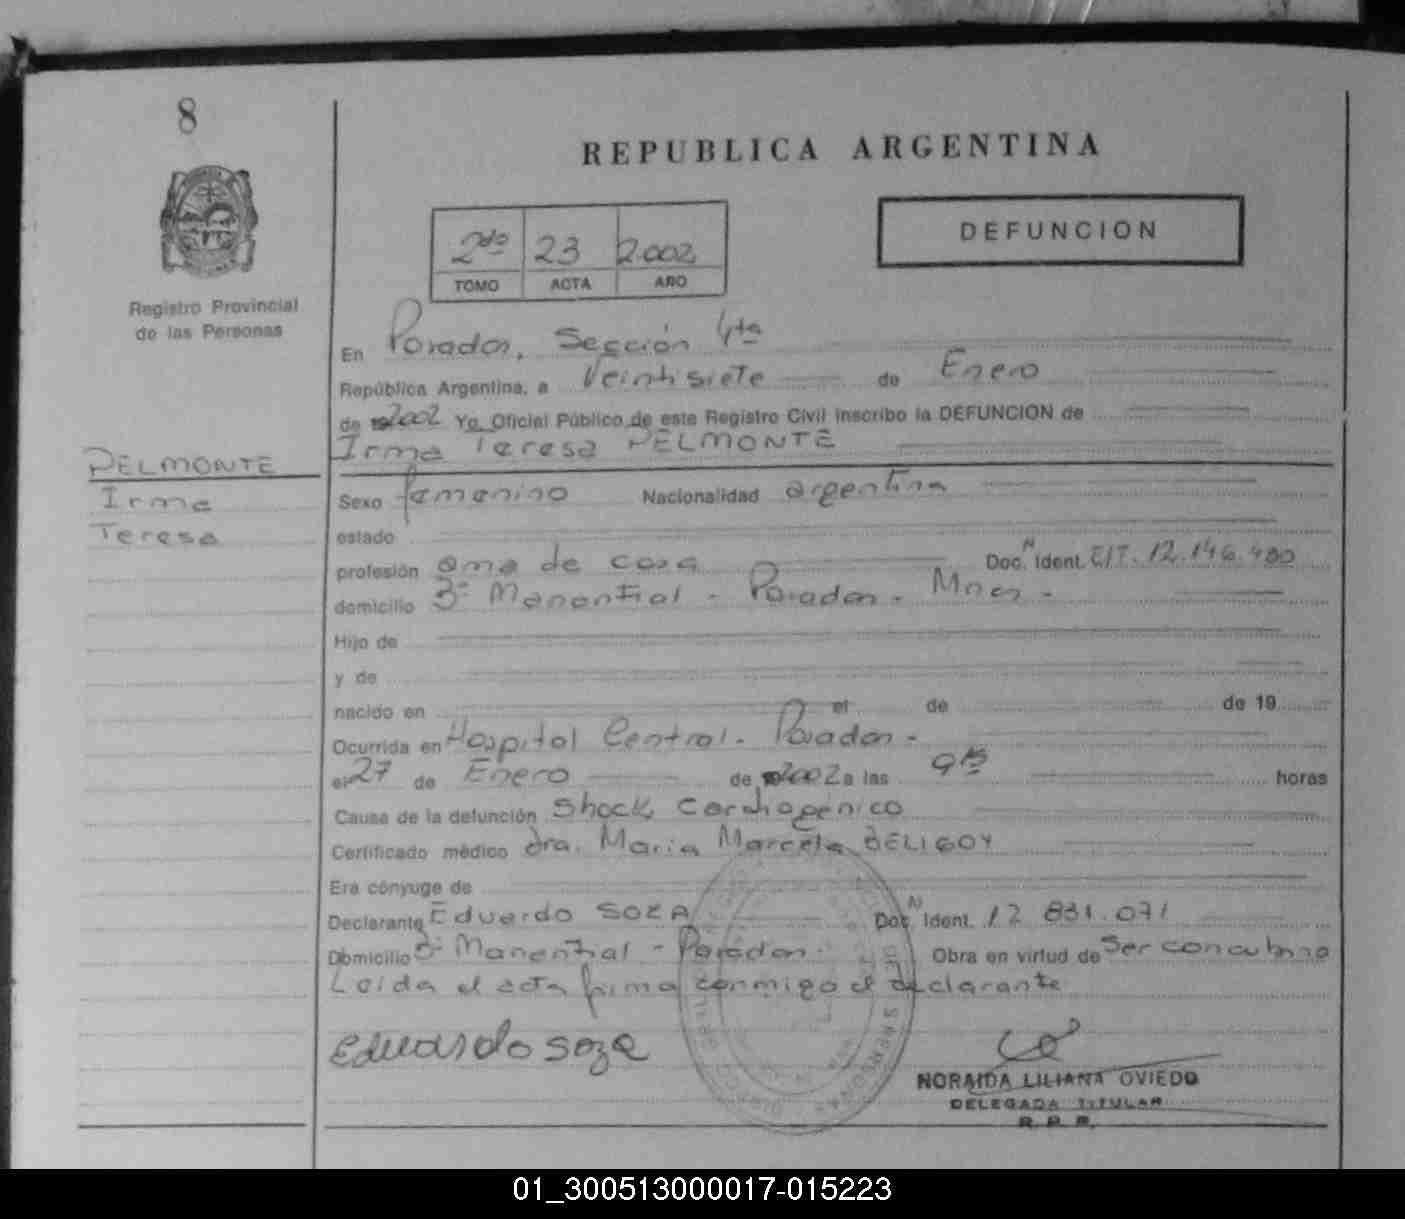 8
REPUBLICA ARGENTINA
DEFUNCION
2do 23 2.002
TOMO ACTA AÑO
Registro Provincial
de las Personas
En Posadas, Sección 4ta
República Argentina, a Veintisiete de Enero
de 2002 Yo, Oficial Público de este Registro Civil inscribo la DEFUNCION de
Irma Teresa PELMONTE
PELMONTE
Irma
Teresa
Sexo femenino Nacionalidad argentina
estado
profesión ama de casa Doc. N Ident.
domicilio 3° Manantial - Posadas - Mnes -
Hijo de
y de
nacido en el de de 19
Ocurrida en Hospital Central - Posadas -
el 27 de Enero de 2002 a las horas
Causa de la defunción Shock Cardiogenico
Certificado médico dra. Maria Marcela BELIGOY
Era cónyuge de
Declarante Eduardo SOZA Doc. N Ident. 12 831.071
Domicilio 3° Manantial - Posadas - Obra en virtud de Ser concubino
Leida el acta firma conmigo el declarante
Eduardo soza
NORAIDA LILIANA OVIEDO
DELEGADA TITULAR
R. P. P.
01_300513000017-015223